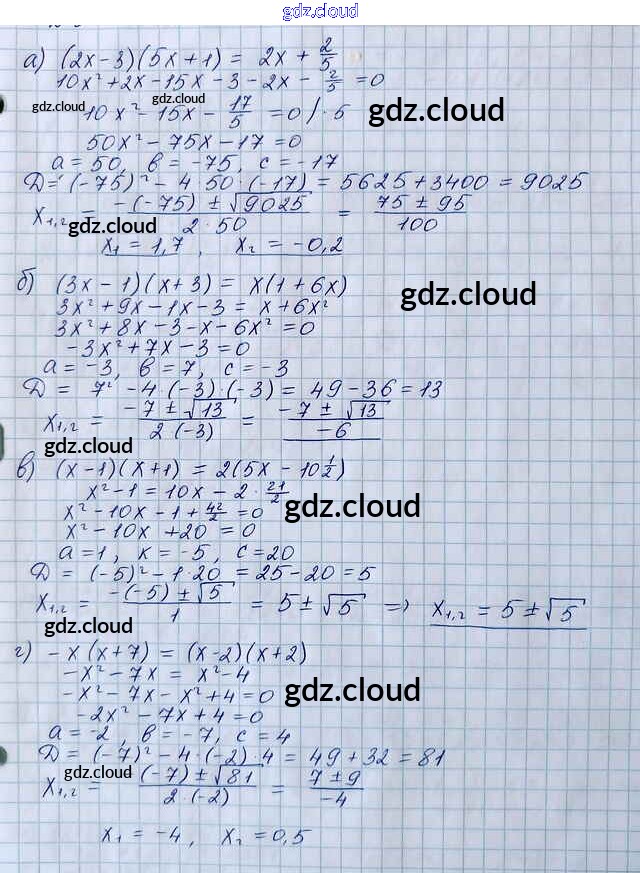 gdz.cloud
а) (2x-3)(5x+1) = 2x + 2/5
10x² + 2x - 15x - 3 - 2x - 2/5 = 0
gdz.cloud gdz.cloud
10x² - 15x - 17/5 = 0 / · 5
gdz.cloud
50x² - 75x - 17 = 0
a = 50, в = -75, c = -17
D = (-75)² - 4 · 50 · (-17) = 5625 + 3400 = 9025
x₁,₂ = (-(-75) ± √9025)/(2 · 50) = (75 ± 95)/100
gdz.cloud
x₁ = 1,7, x₂ = -0,2
б) (3x - 1)(x + 3) = x(1 + 6x)
gdz.cloud
3x² + 9x - 1x - 3 = x + 6x²
3x² + 8x - 3 - x - 6x² = 0
-3x² + 7x - 3 = 0
a = -3, в = 7, c = -3
D = 7² - 4 · (-3) · (-3) = 49 - 36 = 13
x₁,₂ = (-7 ± √13)/(2 · (-3)) = (-7 ± √13)/(-6)
gdz.cloud
в) (x - 1)(x + 1) = 2(5x - 10 1/2)
x² - 1 = 10x - 2 · 21/2
gdz.cloud
x² - 10x - 1 + 42/2 = 0
x² - 10x + 20 = 0
a = 1, к = -5, c = 20
D = (-5)² - 1 · 20 = 25 - 20 = 5
x₁,₂ = (-(-5) ± √5)/1 = 5 ± √5 => x₁,₂ = 5 ± √5
gdz.cloud
г) -x(x + 7) = (x - 2)(x + 2)
-x² - 7x = x² - 4
gdz.cloud
-x² - 7x - x² + 4 = 0
-2x² - 7x + 4 = 0
a = -2, в = -7, c = 4
D = (-7)² - 4 · (-2) · 4 = 49 + 32 = 81
gdz.cloud
x₁,₂ = (-(-7) ± √81)/(2 · (-2)) = (7 ± 9)/(-4)
x₁ = -4, x₂ = 0,5